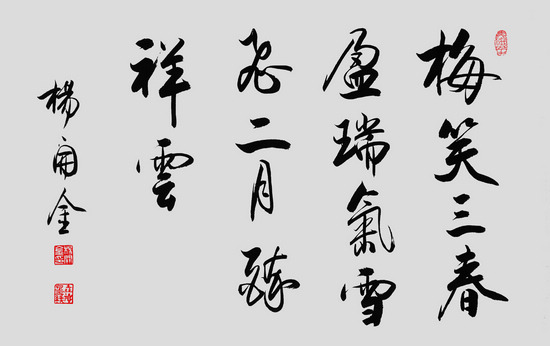 梅笑三春
盈瑞氣雪
飛二月醉
祥雲
楊金